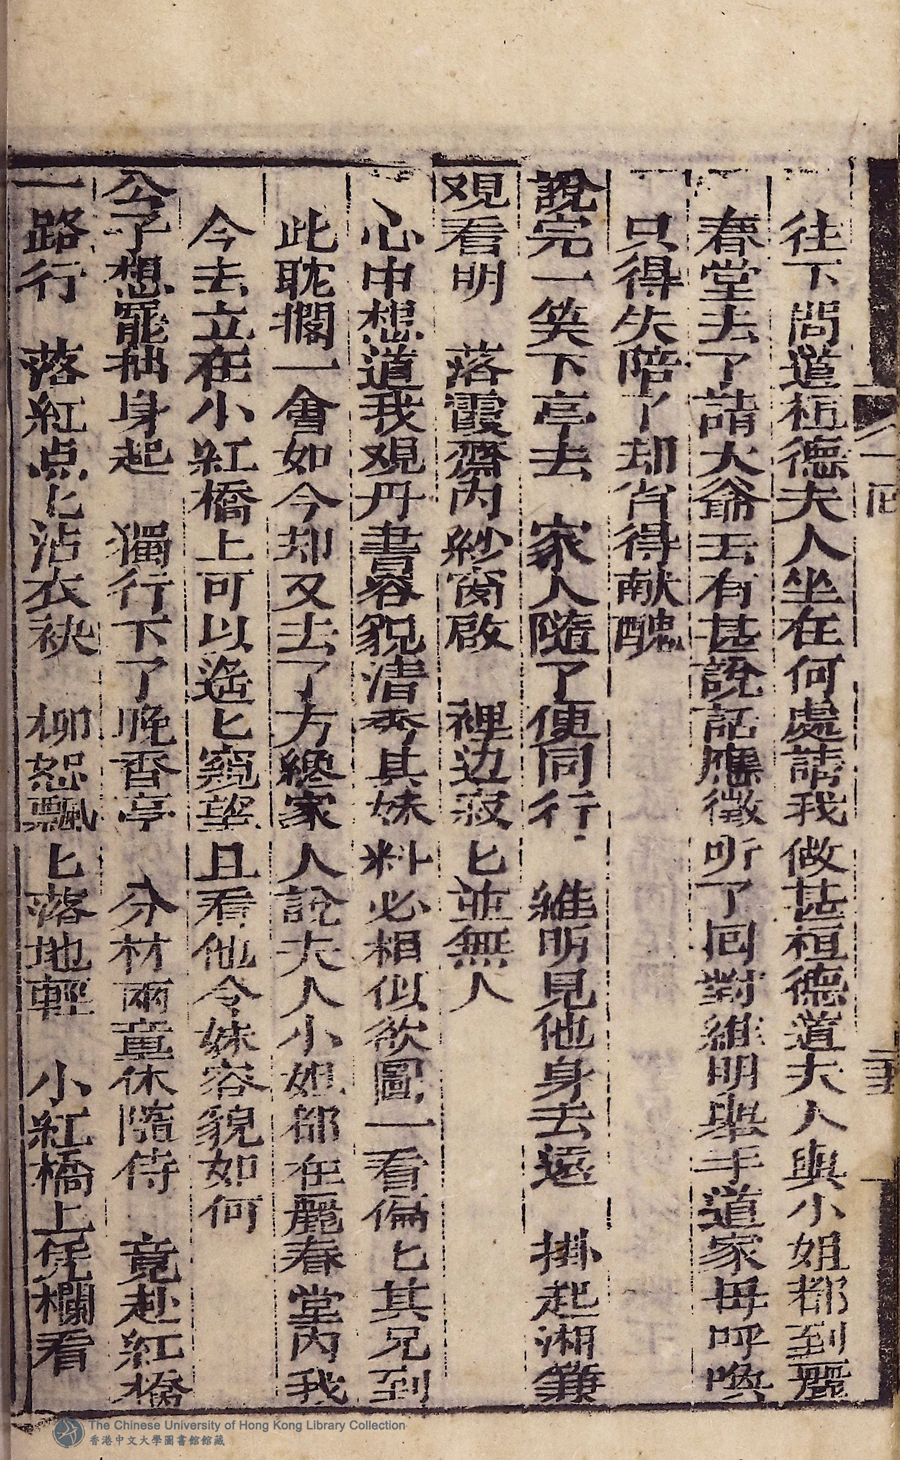 往下問道桓德夫人坐在何處請我做甚桓德道夫人與小姐都到麗
春堂去了請大爺去有甚說話應徵听了回對維明舉手道家母呼喚
只得失陪了却官得献醜
說完一笑下亭去 家人隨了便同行 維明見他身去遠 掛起湘簾
观看明 落霞齋内紗窗啟 裡边寂匕並無人
心中想道我观丹書容貌清秀其妹料必相似欲圖一看偏匕其兄到
此耽擱一會如今却又去了方纔家人說夫人小姐都在麗春堂内我
今去立在小紅橋上可以遥匕窺望且看他令妹容貌如何
公子想罷抽身起 獨行下了晚香亭 分材兩童休隨侍 竟赴紅橋
一路行 落紅点匕沾衣袂 柳恕飄匕落地輕 小紅橋上凭欄看
The Chinese University of Hong Kong Library Collection
香港中文大學圖書館館藏